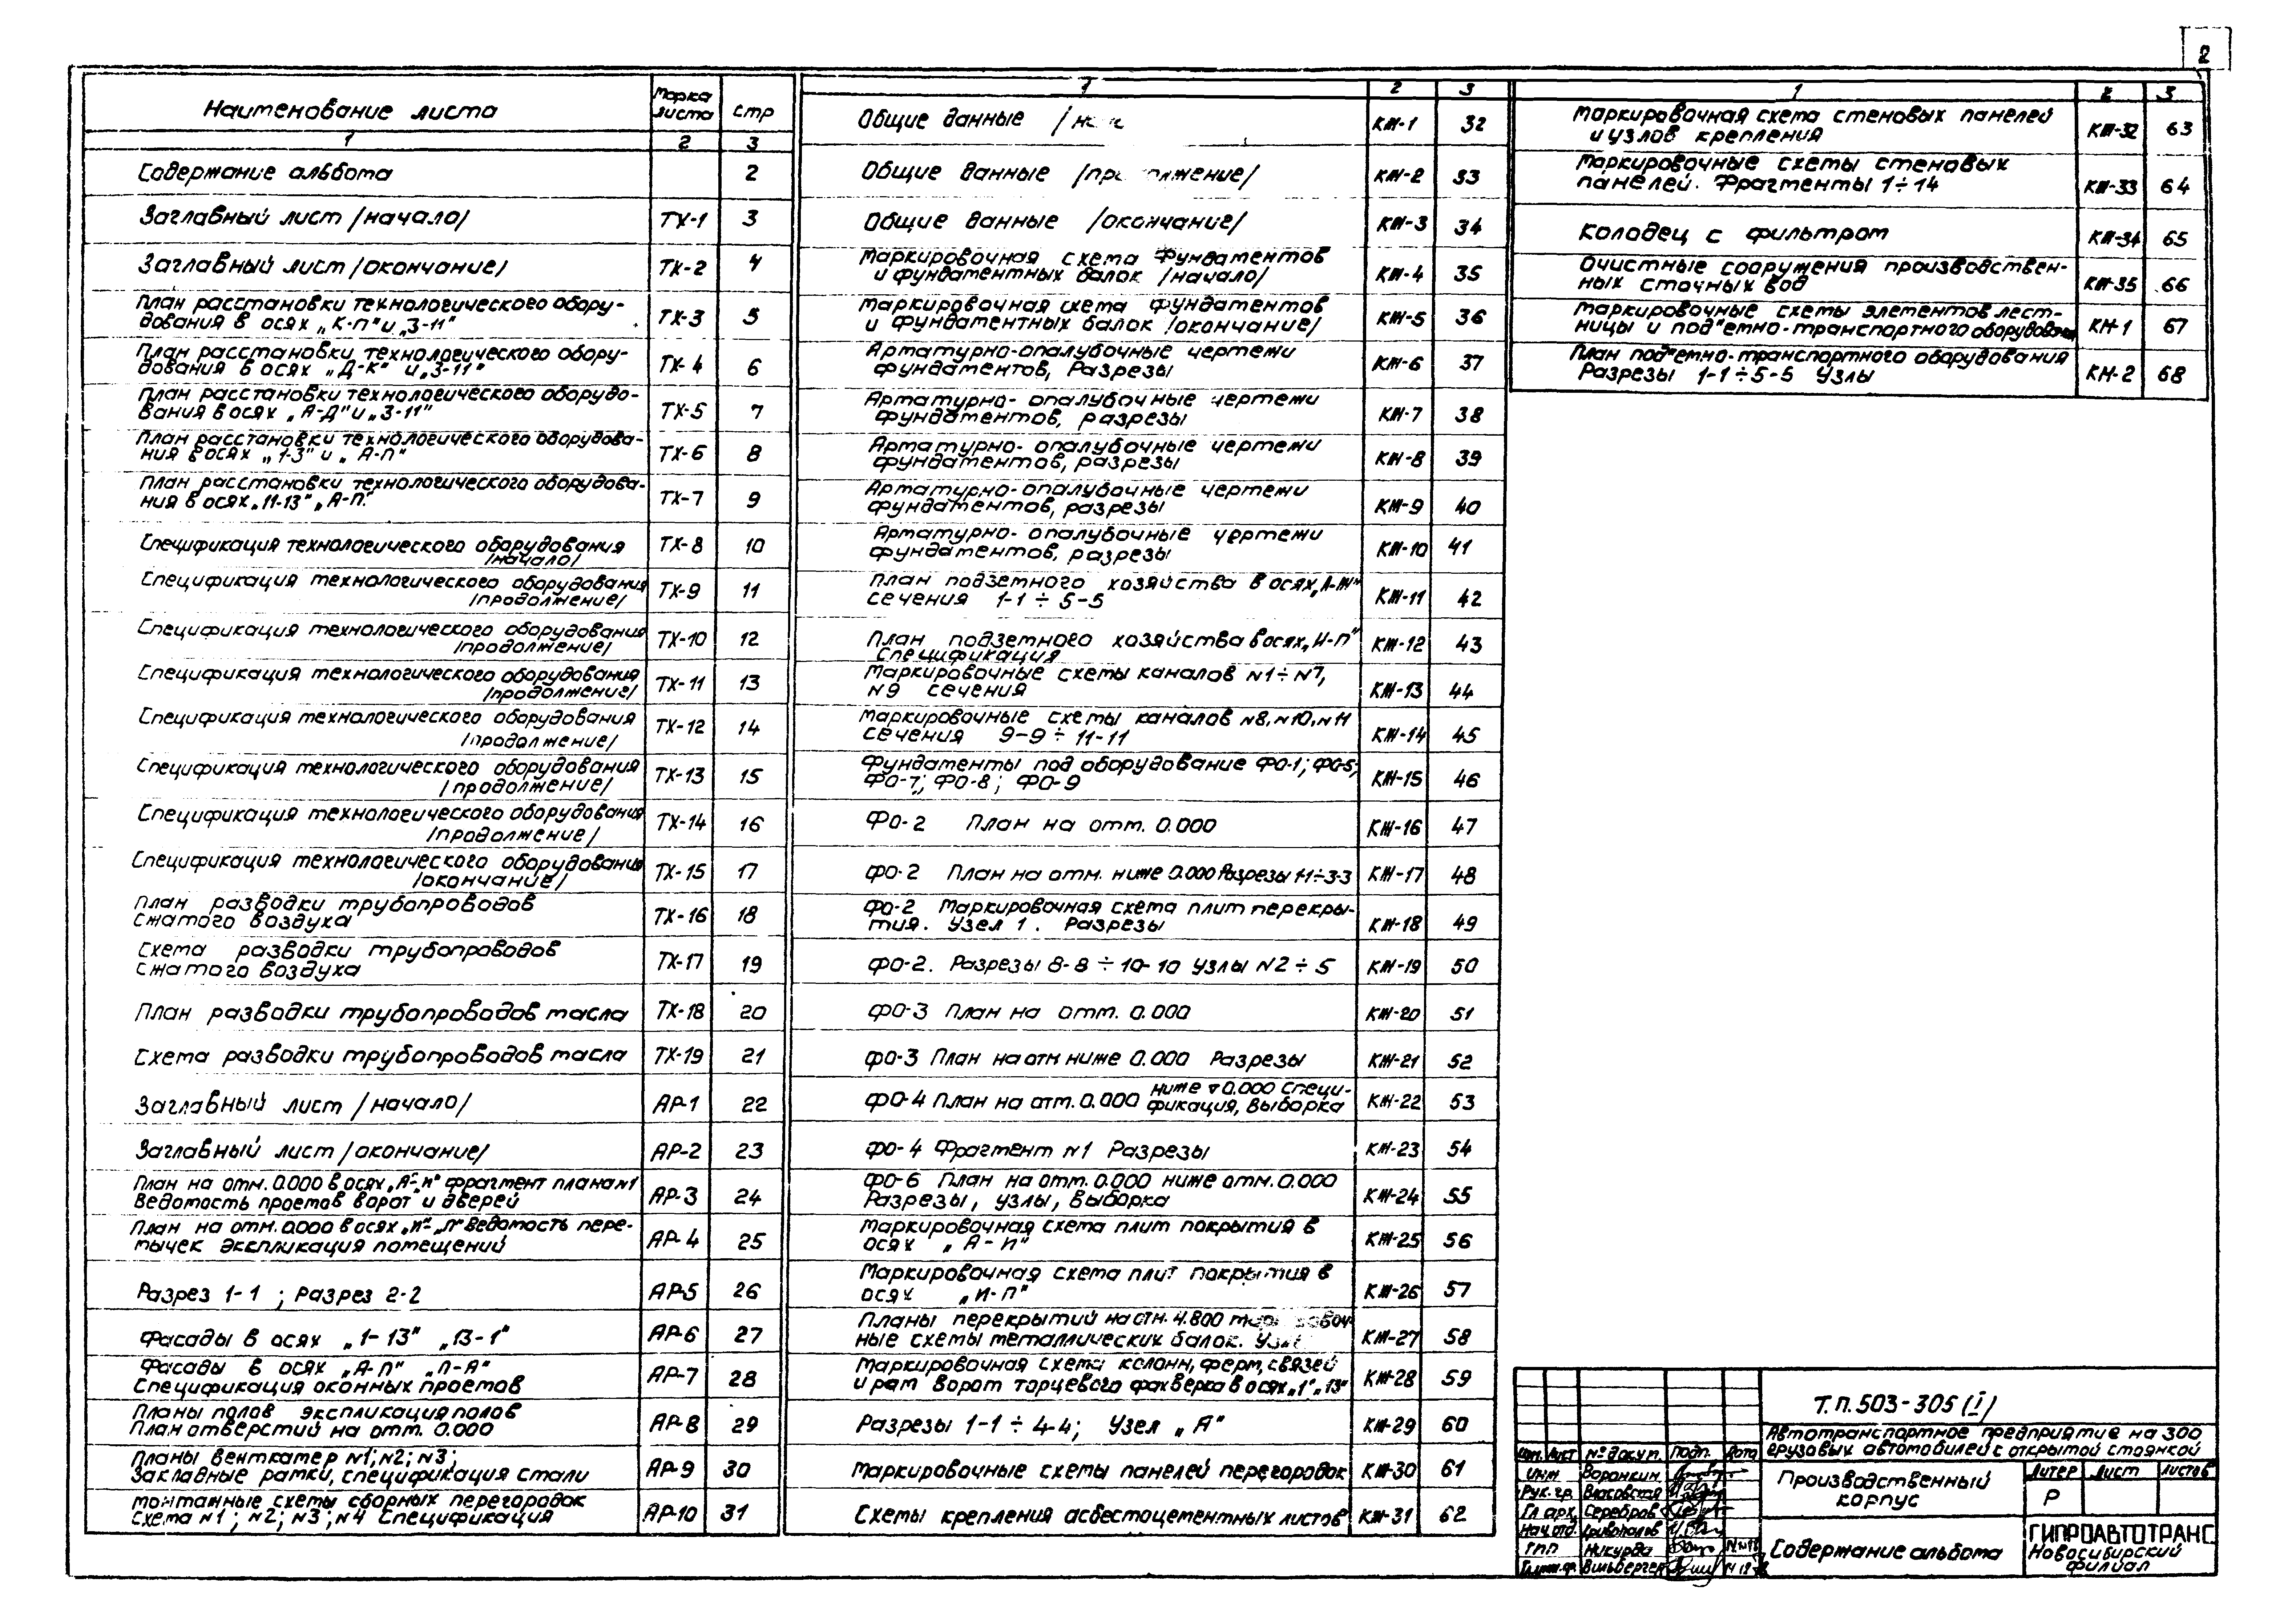 2
Наименование листа
Марка листа
стр
1 2 3
Содержание альбома 2
Заглавный лист /начало/ ТХ-1 3
Заглавный лист /окончание/ ТХ-2 4
План расстановки технологического обору-
дования в осях „К-П" и „3-11" ТХ-3 5
План расстановки технологического обору-
дования в осях „Д-К" и „3-11" ТХ-4 6
План расстановки технологического оборудо-
вания в осях „А-Д" и „3-11" ТХ-5 7
План расстановки технологического оборудова-
ния в осях „1-3" и „А-П" ТХ-6 8
План расстановки технологического оборудова-
ния в осях „11-13" „А-П" ТХ-7 9
Спецификация технологического оборудования
/начало/ ТХ-8 10
Спецификация технологического оборудования
/продолжение/ ТХ-9 11
Спецификация технологического оборудования
/продолжение/ ТХ-10 12
Спецификация технологического оборудования
/продолжение/ ТХ-11 13
Спецификация технологического оборудования
/продолжение/ ТХ-12 14
Спецификация технологического оборудования
/продолжение/ ТХ-13 15
Спецификация технологического оборудования
/продолжение/ ТХ-14 16
Спецификация технологического оборудования
/окончание/ ТХ-15 17
План разводки трубопроводов
сжатого воздуха ТХ-16 18
Схема разводки трубопроводов
сжатого воздуха ТХ-17 19
План разводки трубопроводов масла ТХ-18 20
Схема разводки трубопроводов масла ТХ-19 21
Заглавный лист /начало/ АР-1 22
Заглавный лист /окончание/ АР-2 23
План на отм. 0.000 в осях „А-И" фрагмент плана N1
Ведомость проемов ворот и дверей АР-3 24
План на отм. 0.000 в осях „И-П" Ведомость пере-
мычек экспликация помещений АР-4 25
Разрез 1-1 ; Разрез 2-2 АР-5 26
Фасады в осях „1-13" „13-1" АР-6 27
Фасады в осях „А-П" „П-А"
Спецификация оконных проемов АР-7 28
Планы полов экспликация полов
План отверстий на отм. 0.000 АР-8 29
Планы венткамер N1; N2; N3;
Закладные рамки, спецификация стали АР-9 30
Монтажные схемы сборных перегородок
Схема N1 ; N2; N3 ; N4 Спецификация АР-10 31
1 2 3
Общие данные КЖ-1 32
Общие данные КЖ-2 33
Общие данные /окончание/ КЖ-3 34
Маркировочная схема Фундаментов
и фундаментных балок /начало/ КЖ-4 35
Маркировочная схема фундаментов
и фундаментных балок /окончание/ КЖ-5 36
Арматурно-опалубочные чертежи
фундаментов, Разрезы КЖ-6 37
Арматурно- опалубочные чертежи
фундаментов, разрезы КЖ-7 38
Арматурно- опалубочные чертежи
фундаментов, разрезы КЖ-8 39
Арматурно-опалубочные чертежи
фундаментов, разрезы КЖ-9 40
Арматурно- опалубочные чертежи
фундаментов, разрезы КЖ-10 41
План подземного хозяйства в осях „А-Ж"
сечения 1-1 ÷ 5-5 КЖ-11 42
План подземного хозяйства в осях „И-П"
Спецификация КЖ-12 43
Маркировочные схемы каналов N1÷N7,
N9 сечения КЖ-13 44
Маркировочные схемы каналов N8, N10, N11
сечения 9-9 ÷ 11-11 КЖ-14 45
Фундаменты под оборудование ФО-1; ФО-5;
ФО-7; ФО-8 ; ФО-9 КЖ-15 46
ФО-2 План на отм. 0.000 КЖ-16 47
ФО-2 План на отм. ниже 0.000 Разрезы 1-1÷3-3 КЖ-17 48
ФО-2 Маркировочная схема плит перекры-
тия. Узел 1. Разрезы КЖ-18 49
ФО-2. Разрезы 8-8 ÷ 10-10 Узлы N2 ÷ 5 КЖ-19 50
ФО-3 План на отм. 0.000 КЖ-20 51
ФО-3 План на отм ниже 0.000 Разрезы КЖ-21 52
ФО-4 План на отм. 0.000 ниже ▽0.000 Специ-
фикация, Выборка КЖ-22 53
ФО-4 Фрагмент N1 Разрезы КЖ-23 54
ФО-6 План на отм. 0.000 ниже отм. 0.000
Разрезы, узлы, Выборка КЖ-24 55
Маркировочная схема плит покрытия в
осях „А-И" КЖ-25 56
Маркировочная схема плит покрытия в
осях „И-П" КЖ-26 57
Планы перекрытий на отм. 4.800
ные схемы металлических балок. КЖ-27 58
Маркировочная схема колонн, ферм, связей
и рам ворот торцевого фахверка в осях „1", „13" КЖ-28 59
Разрезы 1-1 ÷ 4-4; Узел „А" КЖ-29 60
Маркировочные схемы панелей перегородок КЖ-30 61
Схемы крепления асбестоцементных листов КЖ-31 62
1 2 3
Маркировочная схема стеновых панелей
и узлов крепления КЖ-32 63
Маркировочные схемы стеновых
панелей. Фрагменты 1÷14 КЖ-33 64
Колодец с фильтром КЖ-34 65
Очистные сооружения производствен-
ных сточных вод КЖ-35 66
Маркировочные схемы элементов лест-
ницы и под"емно-транспортного оборудования КМ-1 67
План под"емно-транспортного оборудования
Разрезы 1-1÷5-5 Узлы КМ-2 68
Т.П. 503-305 (I)
Автотранспортное предприятие на 300
грузовых автомобилей с открытой стоянкой
Изм. Лист N° докум. Подп. Дата
Инж Воронкин
Рук. гр. Власовская
Гл арх. Серебров
Нач. отд.
ГИП Никурда
Вильбергер
Производственный
корпус
Литер Лист Листов
Р
Содержание альбома
ГИПРОАВТОТРАНС
Новосибирский
филиал